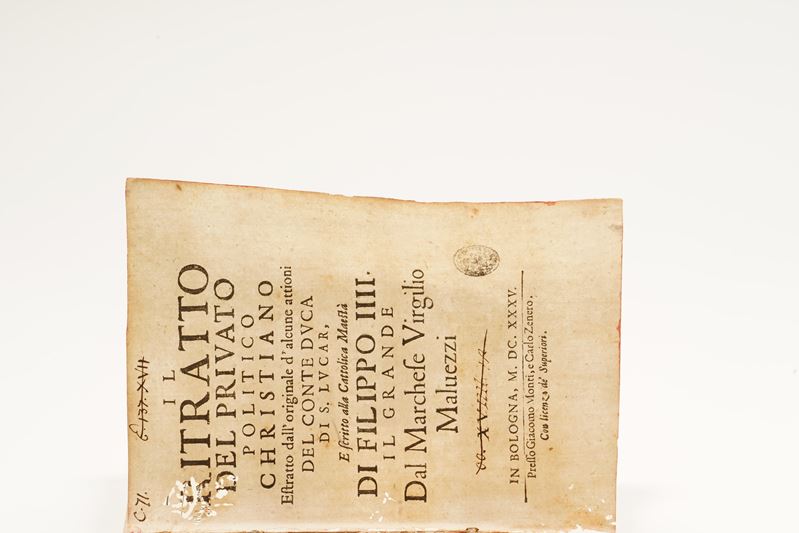 C.71.
6 137. XVII
IL
RITRATTO
DEL PRIVATO
POLITICO
CHRISTIANO
Eſtratto dall'originale d'alcune attioni
DEL CONTE DVCA
DI S. LVCAR,
E ſcritto alla Cattolica Maestà
DI FILIPPO IIII.
IL GRANDE
Dal Marcheſe Virgilio
Maluezzi
IN BOLOGNA, M. DC. XXXV.
Preſſo Giacomo Monti, e Carlo Zenero.
Con licenza de' Superiori.